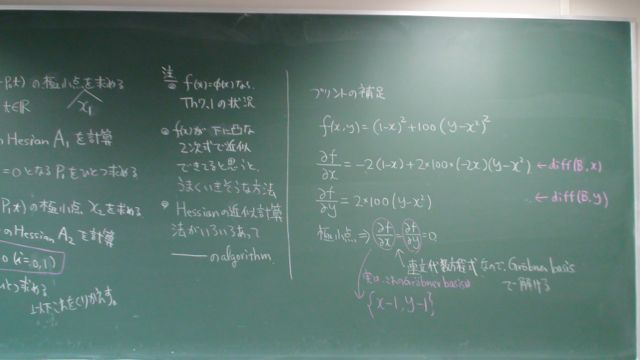 P₁t) の極小点を求める
t∈ℝ x₁
Hessian A₁ を計算
=0となる P₁をひとつ求める
P₁t) の極小点 x₂ を求める
のHessian A₂ を計算
0 (i=0,1)
ひとつ求める
注
f(x)=ϕ(x)なら、
Th7.1の状況
f(x)が下に凸な
2次式で近似
できてると思うと、
うまくいきそうな方法
Hessianの近似計算
法がいろいろあって
―― のalgorithm.
プリントの補足
f(x,y)=(1-x)²+100(y-x²)²
∂f/∂x=-2(1-x)+2×100×(-2x)(y-x²) ←diff(B,x)
∂f/∂y=2×100(y-x²) ←diff(B,y)
極小点 ⇒ ∂f/∂x=∂f/∂y=0
連立代数方程式なので、Gröbner basis
で解ける
実は、これのGröbner basisは
{x-1, y-1}